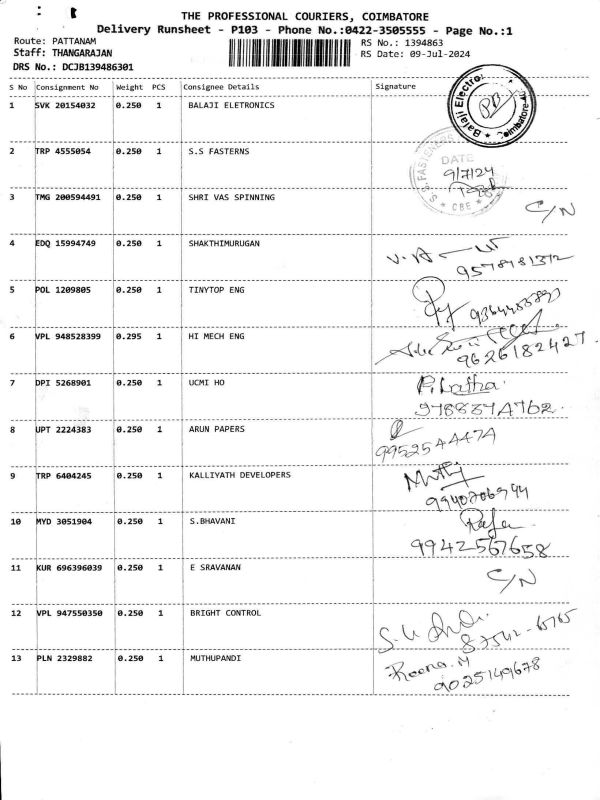 THE PROFESSIONAL COURIERS, COIMBATORE
Delivery Runsheet - P103 - Phone No.:0422-3505555 - Page No.:1
Route: PATTANAM
RS No.: 1394863
Staff: THANGARAJAN
RS Date: 09-Jul-2024
DRS No.: DCJB139486301
S No Consignment No Weight PCS Consignee Details Signature
1 SVK 20154032 0.250 1 BALAJI ELETRONICS
Balaji Electro
Coimbatore
2 TRP 4555054 0.250 1 S.S FASTERNS
S.S. FASTENERS
DATE
9/7/24
* CBE *
3 TMG 200594491 0.250 1 SHRI VAS SPINNING C/N
4 EDQ 15994749 0.250 1 SHAKTHIMURUGAN
5 POL 1209805 0.250 1 TINYTOP ENG
6 VPL 948528399 0.295 1 HI MECH ENG
9626182427
7 DPI 5268901 0.250 1 UCMI HO P. Latha.
9788374762
8 UPT 2224383 0.250 1 ARUN PAPERS
9952544474
9 TRP 6404245 0.250 1 KALLIYATH DEVELOPERS
9940706944
10 MYD 3051904 0.250 1 S.BHAVANI
9942567658
11 KUR 696396039 0.250 1 E SRAVANAN C/N
12 VPL 947550350 0.250 1 BRIGHT CONTROL
13 PLN 2329882 0.250 1 MUTHUPANDI Reena. M
9025149678